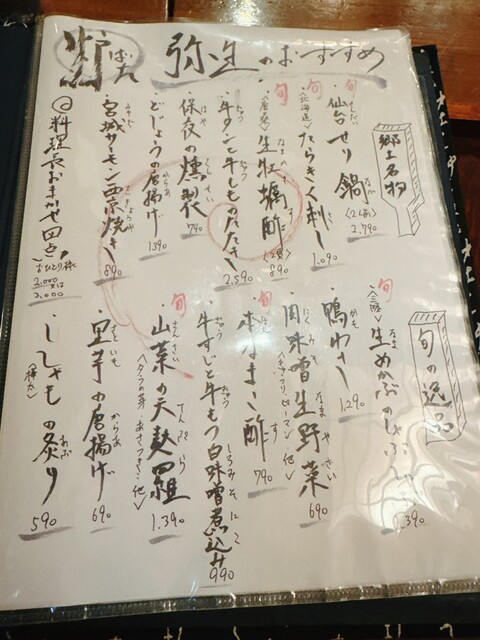 弥生のおすすめ
郷土名物
旬 仙台せり鍋 〈2人前〉 2.790
旬 〈北海道〉たらきく刺し 1.090
旬 〈唐桑〉生牡蠣酢 〈2個〉 890
牛タンと牛しものたたき 2.590
保夜の燻製 790
どじょうの唐揚げ 1390
宮城サーモン西京焼き 890
◎料理長おまかせ四点 おひとり様 2,000又は3,000
旬の逸品
旬 〈三陸〉生めかぶのしゃぶしゃぶ 1.390
鴨わさ 1.290
肉味噌生野菜 〈キャベツ、ピーマン、他〉 690
旬 本なまこ酢 790
牛すじと牛もつ白味噌煮込み 990
旬 山菜の天麩羅 〈タラの芽・あさつき・他〉 1.390
里芋の唐揚げ 690
ししゃもの炙り 590